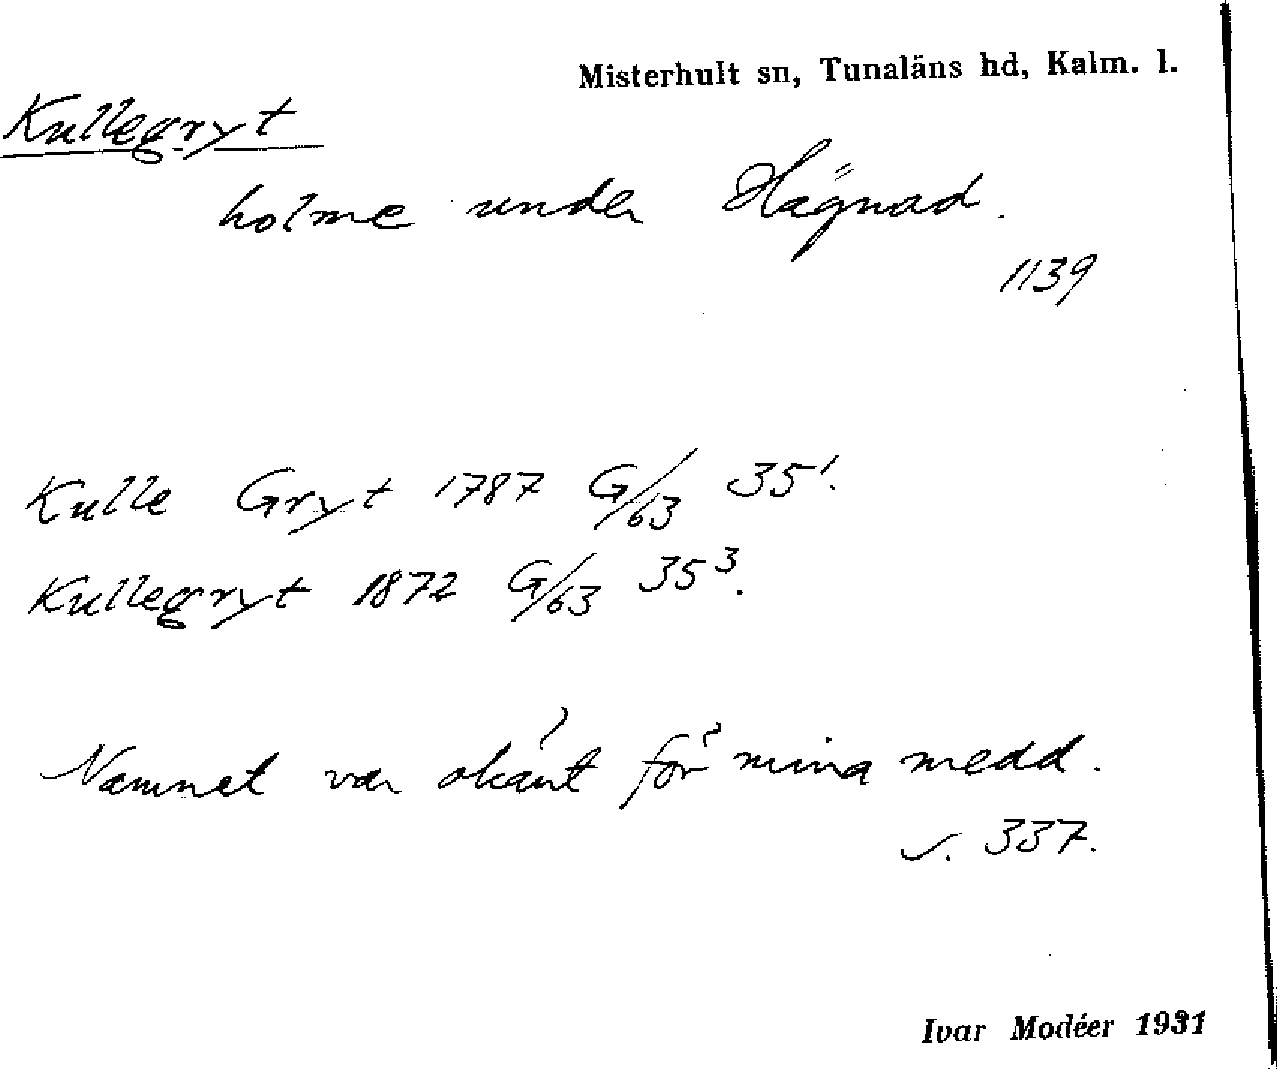 Misterhult sn, Tunaläns hd, Kalm. l.
Kullegryt
holme under Hägnad.
1139
Kulle Gryt 1787 G/63 35¹.
Kullegryt 1872 G/63 35³.
Namnet var okänt för mina medd.
s. 337.
Ivar Modéer 1931